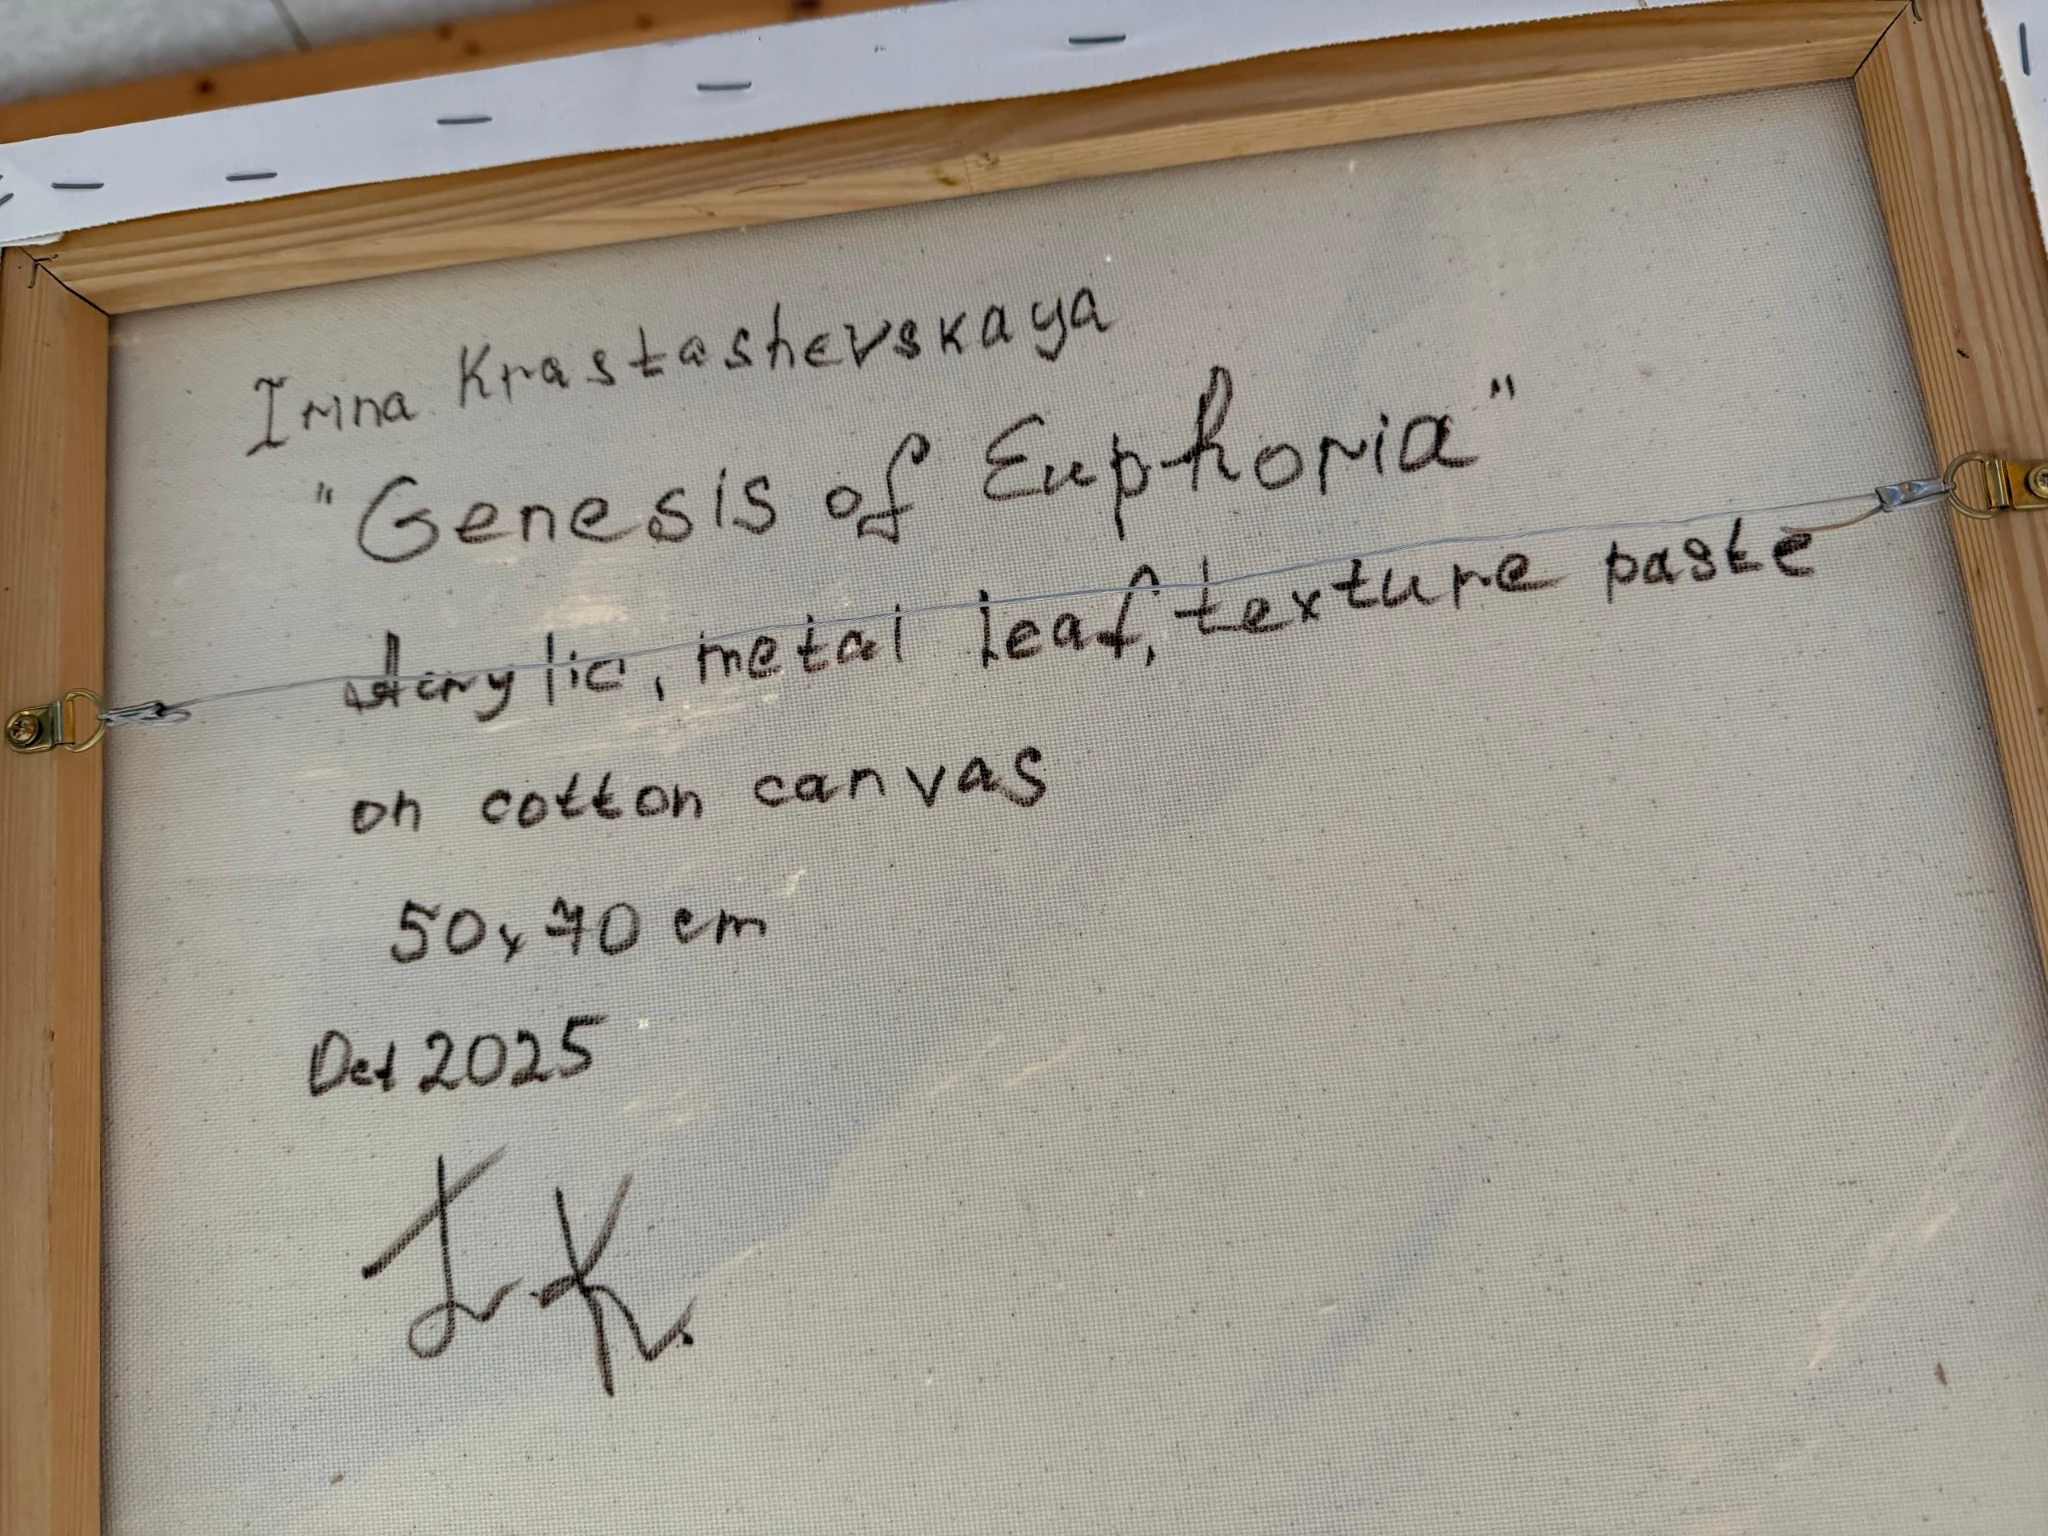 Irina Krastashevskaya
"Genesis of Euphoria"
Acrylic, metal leaf, texture paste
on cotton canvas
50x70 cm
2025